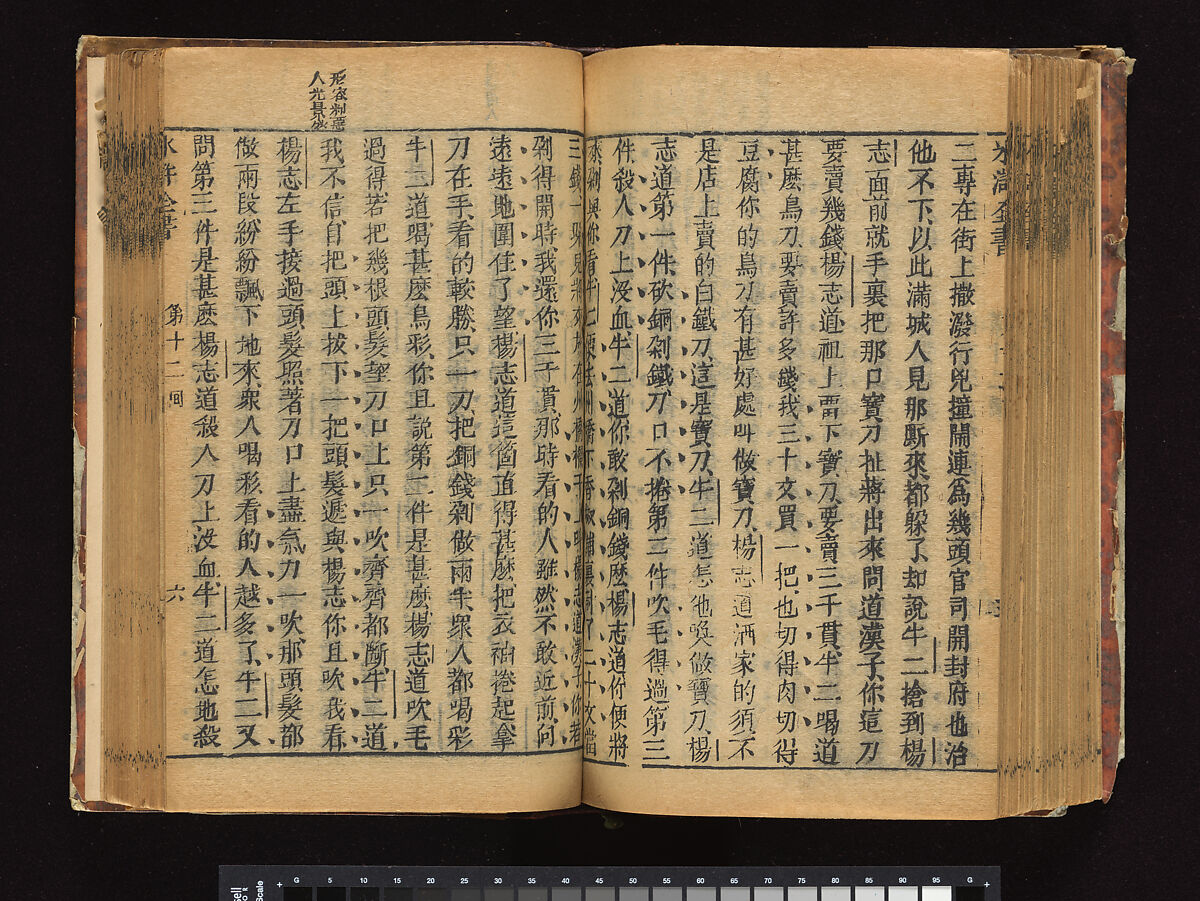 水滸全書
二專在街上撒潑行兇撞鬧連為幾頭官司開封府也治
他不下以此滿城人見那厮來都躲了却說牛二搶到楊
志面前就手裏把那口寶刀扯將出來問道漢子你這刀
要賣幾錢楊志道祖上留下寶刀要賣三千貫牛二喝道
甚麽鳥刀要賣許多錢我三十文買一把也切得肉切得
豆腐你的鳥刀有甚好處呌做寶刀楊志道洒家的須不
是店上賣的白鐵刀這是寶刀牛二道怎地喚做寶刀楊
志道第一件砍銅剁鐵刀口不捲第二件吹毛得過第三
件殺人刀上没血牛二道你敢剁銅錢麽楊志道你便將
來剁與你看牛二便去州橋下香椒鋪裏討了二十文當
三錢一垛兒將來放在州橋欄干上呌楊志道漢子你若
剁得開時我還你三千貫那時看的人雖然不敢近前向
遠遠地圍住了望楊志道這箇直得甚麽把衣袖捲起拿
刀在手看的較勝只一刀把銅錢剁做兩半衆人都喝彩
牛二道喝甚麽鳥彩你且說第二件是甚麽楊志道吹毛
過得若把幾根頭髮望刀口上只一吹齊齊都斷牛二道
我不信自把頭上拔下一把頭髮遞與楊志你且吹我看
楊志左手接過頭髮照著刀口上盡氣力一吹那頭髮都
做兩段紛紛飄下地來衆人喝彩看的人越多了牛二又
問第三件是甚麽楊志道殺人刀上没血牛二道怎地殺
水滸全書
第十二囘
六
人光景
G 5 10 15 20 25 30 35 40 45 50 55 60 65 70 75 80 85 90 95 G